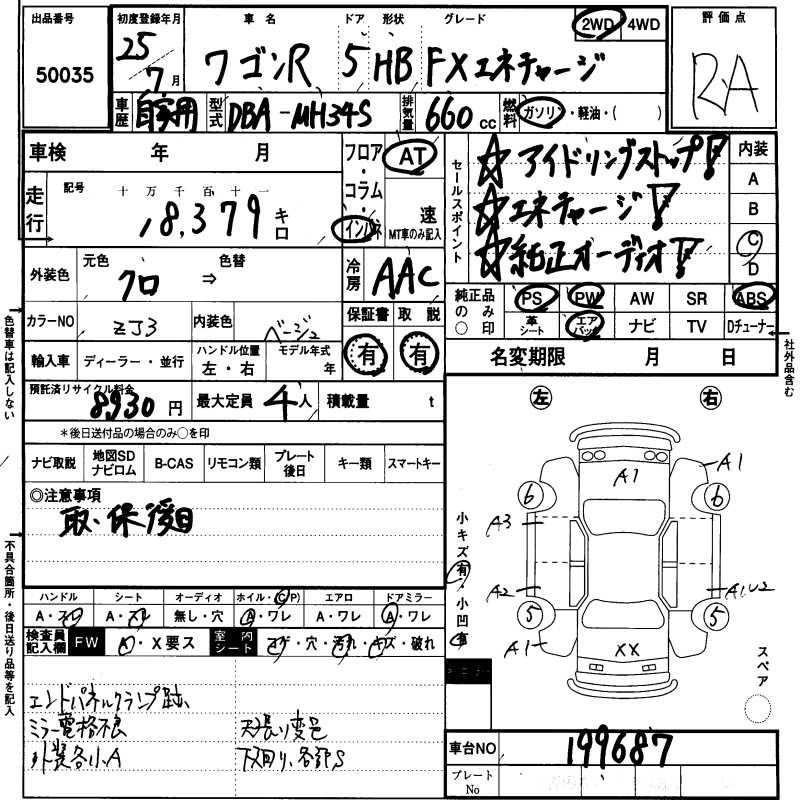 出品番号 初度登録年月 車名 ドア 形状 グレード 2WD 4WD 評価点
50035 25 7月 ワゴンR 5 HB FXエネチャージ RA
車歴 自家用 型式 DBA-MH34S 排気量 660cc 燃料 ガソリン・軽油・( )
車検 年 月 フロア・コラム・インパネ AT 速 MT車のみ記入
走行 記号 十万千百十一 18,379 キロ
セールスポイント
☆アイドリングストップ!
☆エネチャージ!
☆純正オーディオ!
内装 A B C D
外装色 元色 クロ ⇒ 色替 冷房 AAC
カラーNO ZJ3 内装色 ベージュ 保証書 有 取説 有
純正品のみ○印 PS PW AW SR ABS
革シート エアバック ナビ TV Dチューナー
輸入車 ディーラー・並行 ハンドル位置 左・右 モデル年式 年
名変期限 月 日
色替車は記入しない
社外品含む
預託済リサイクル料金 8930円 最大定員 4人 積載量 t
*後日送付品の場合のみ○を印
ナビ取説 地図SDナビロム B-CAS リモコン類 プレート後日 キー類 スマートキー
◎注意事項
取・保後日
不具合箇所・後日送り品等を記入
左 右
A1 A1
6 6
A3
A2 A1U2
5 5
A1 XX
小キズ有・小凹有
スペア
ハンドル シート オーディオ ホイル・(C/P) エアロ ドアミラー
A・スレ A・スレ 無し・穴 A・ワレ A・ワレ A・ワレ
検査員記入欄 FW A・X要ス 室内シート コゲ・穴・汚れ・キズ・破れ
エンドパネルクランプ跡
ミラー電格不良 天張り変色
外装各小A 下回り、各部S
車台NO 199687
プレートNo